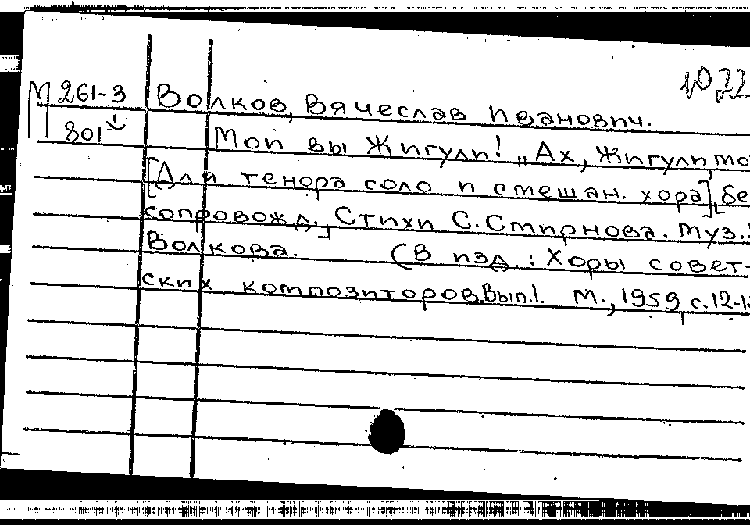 10,22
М 261-3 Волков, Вячеслав Иванович.
801 Мои вы Жигули! „Ах, Жигули мо
[Для тенора соло и смешан. хора], [бе
сопровожд.] Стихи С. Смирнова. Муз.
Волкова. (В изд.: Хоры совет-
ских композиторов. Вып.1. М., 1959, с.12-1